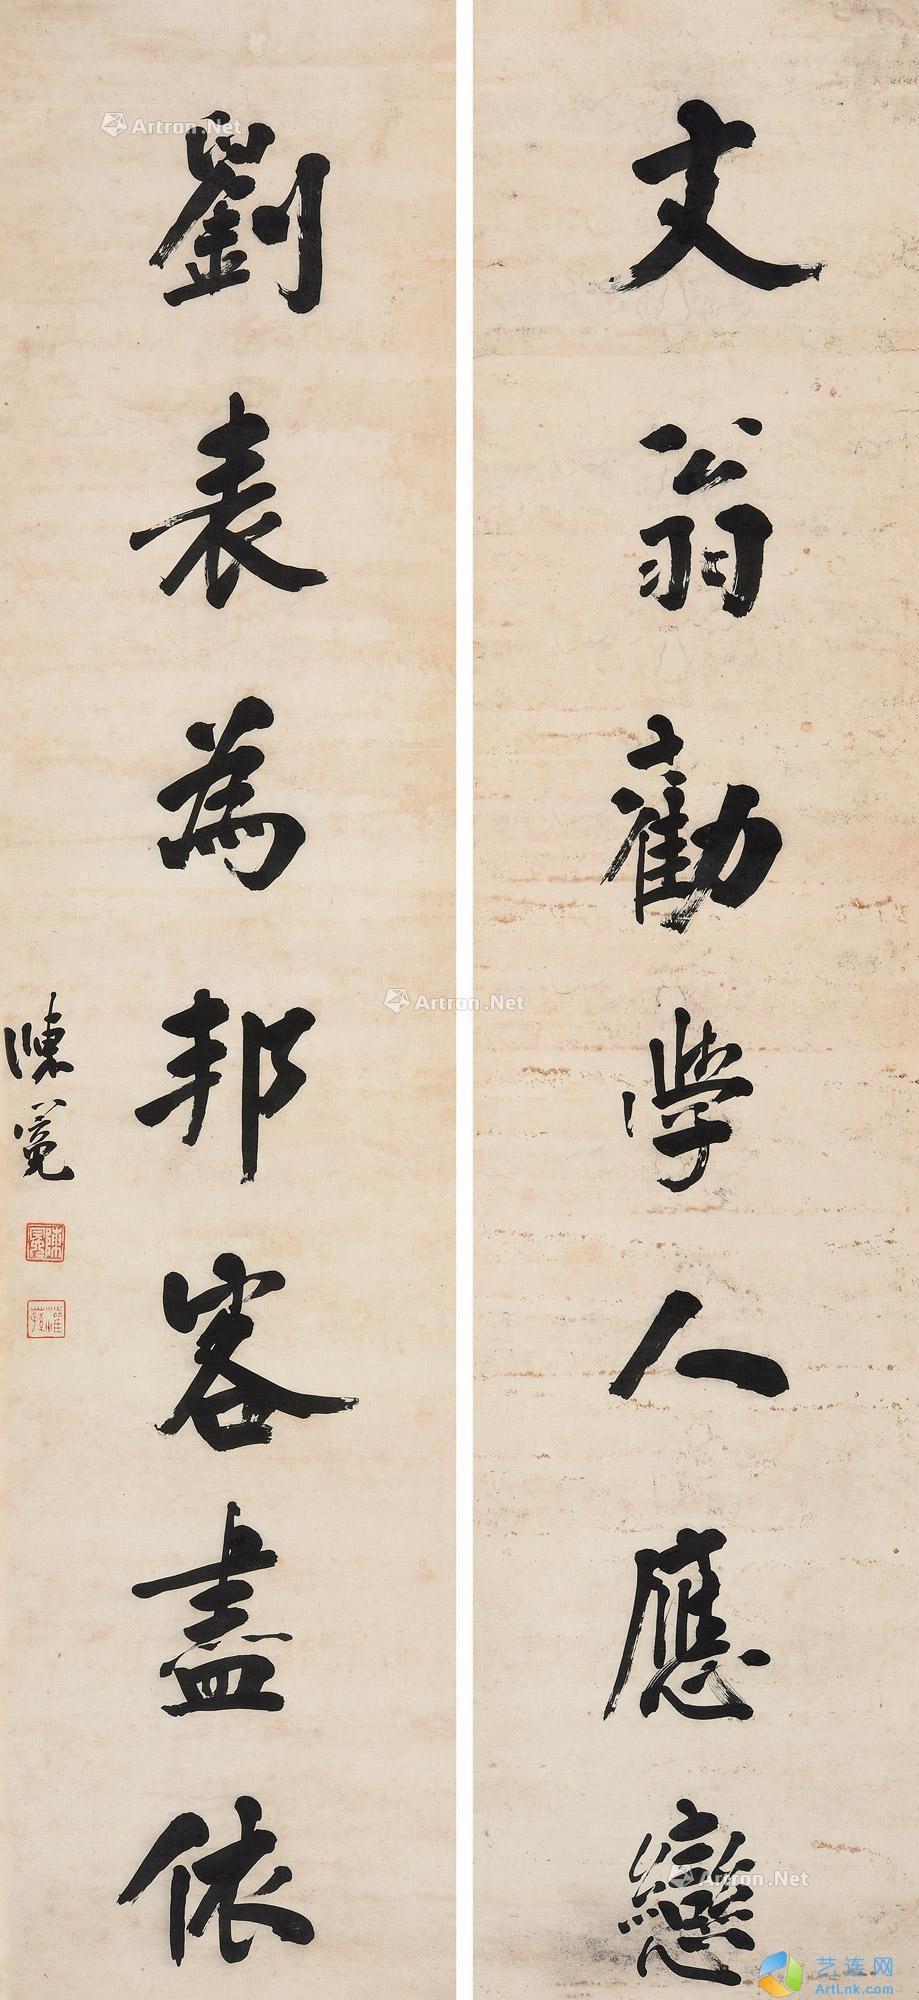 文翁勸學人應戀
劉表為邦客盡依
陳冕
陳冕
Artron.Net
Artron.Net
Artron.Net
艺连网
ArtLnk.com